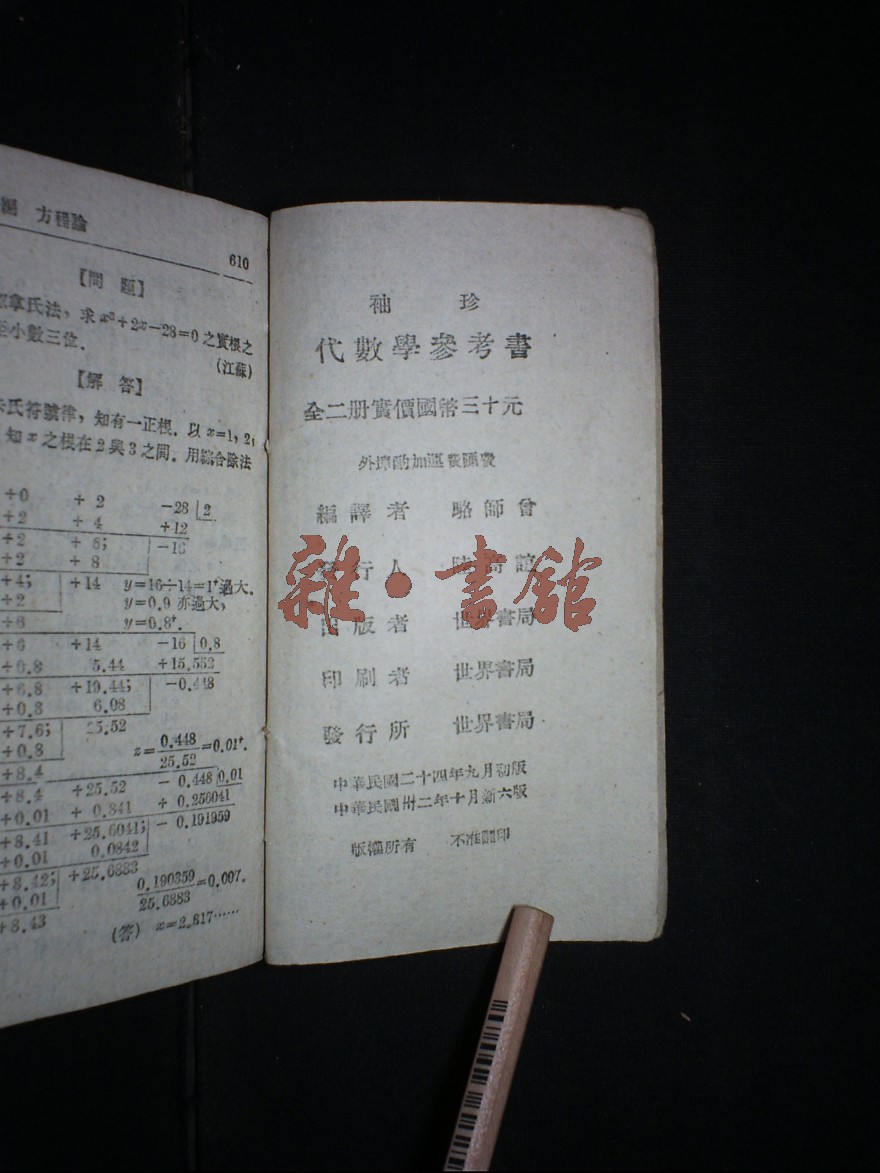 方程論
610
【問題】
拿氏法，求x³+2x−28=0之實根之
至小數三位．
(江蘇)
【解答】
氏符號律，知有一正根．以x=1，2，
知x之根在2與3之間．用綜合除法
+0 +2 −28 2
+2 +4 +12
+2 +6; −16
+2 +8
+4; +14 y=16÷14=1⁺過大．
+2 y=0.9亦過大，
+6 y=0.8⁺．
+6 +14 −16 0.8
+0.8 5.44 +15.552
+6.8 +19.44; −0.448
+0.8 6.08
+7.6; 25.52
+0.8 z=0.448/25.52=0.01⁺．
+8.4
+8.4 +25.52 −0.448 0.01
+0.01 +0.841 +0.256041
+8.41 +25.6041; −0.191959
+0.01 0.0842
+8.42; +25.6883
+0.01 0.190359/25.6883=0.007．
+8.43
(答) x=2.817……
袖珍
代數學參考書
全二册實價國幣三十元
外埠酌加運費匯費
編譯者 駱師曾
發行人 陸高誼
出版者 世界書局
印刷者 世界書局
發行所 世界書局
中華民國二十四年九月初版
中華民國卅二年十月新六版
版權所有 不准翻印
雜·書館